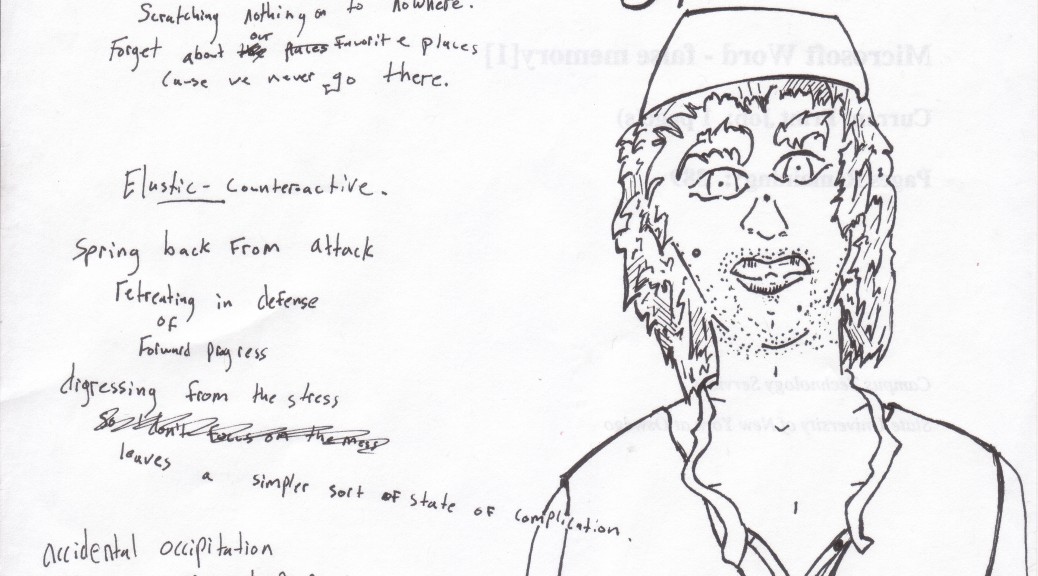 Scratching nothing on to nowhere.
Forget about our favorite places
Cause we never go there.
Elastic - Counteractive.
Spring back From attack
retreating in defense
of
Forward progress
digressing from the stress
So I don't focus on the mess
leaves a simpler sort of state of complication.
accidental occipitation
Microsoft Word - false memory[1]
Campus Technology Services
State University of New York at Oswego